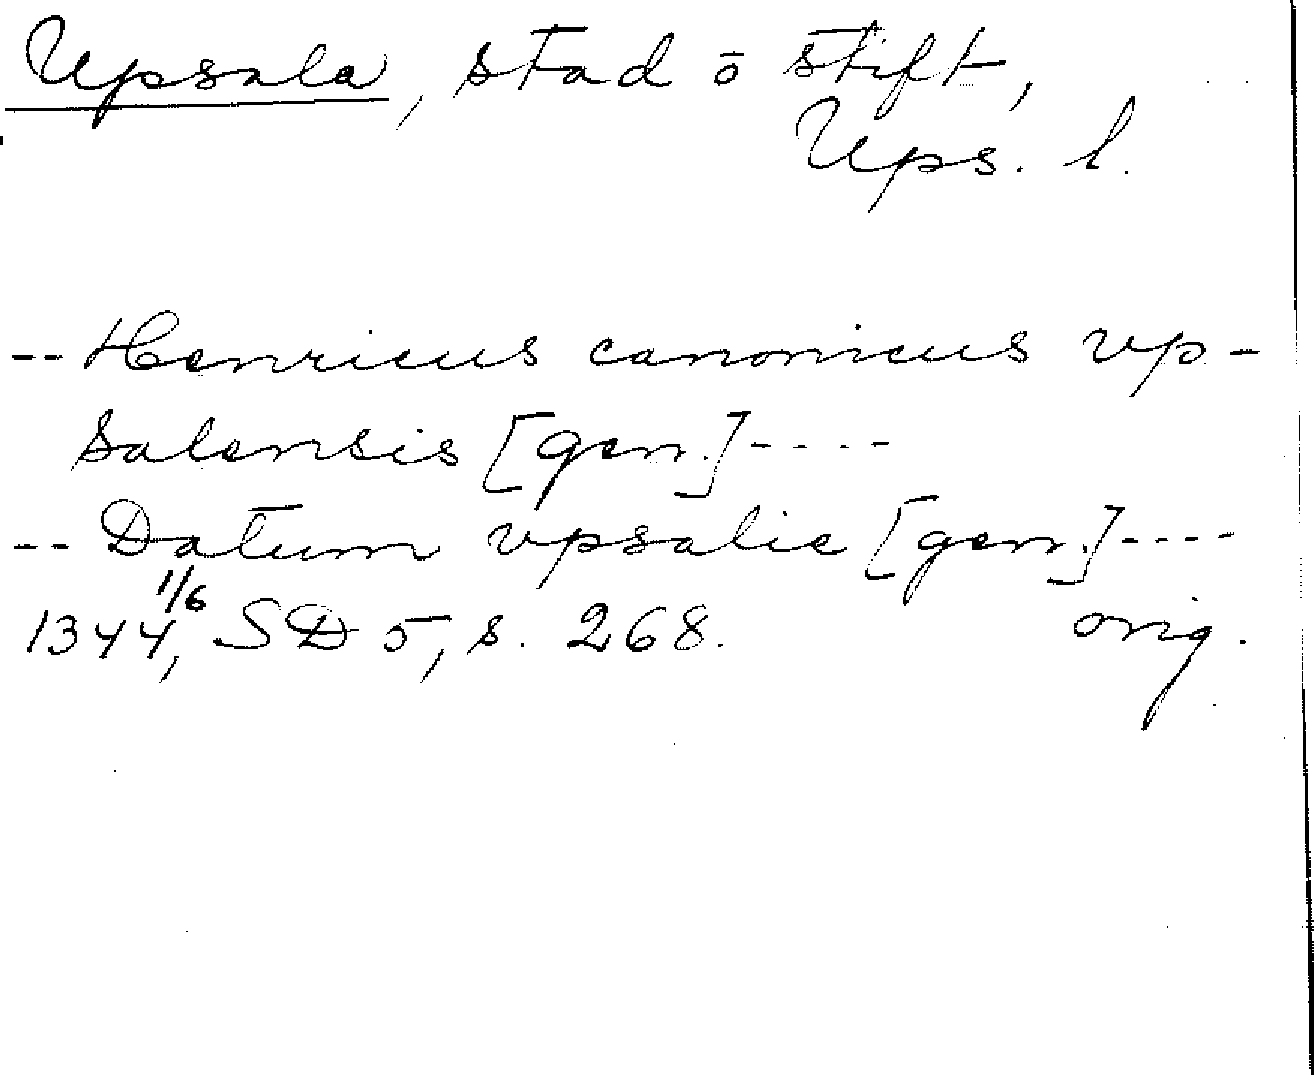 Upsala, stad ō stift,
Ups. l.
-- Henricus canonicus vp-
salensis [gen.] ----
-- Datum vpsalie [gen.] ----
1344 1/6, SD 5, s. 268. orig.